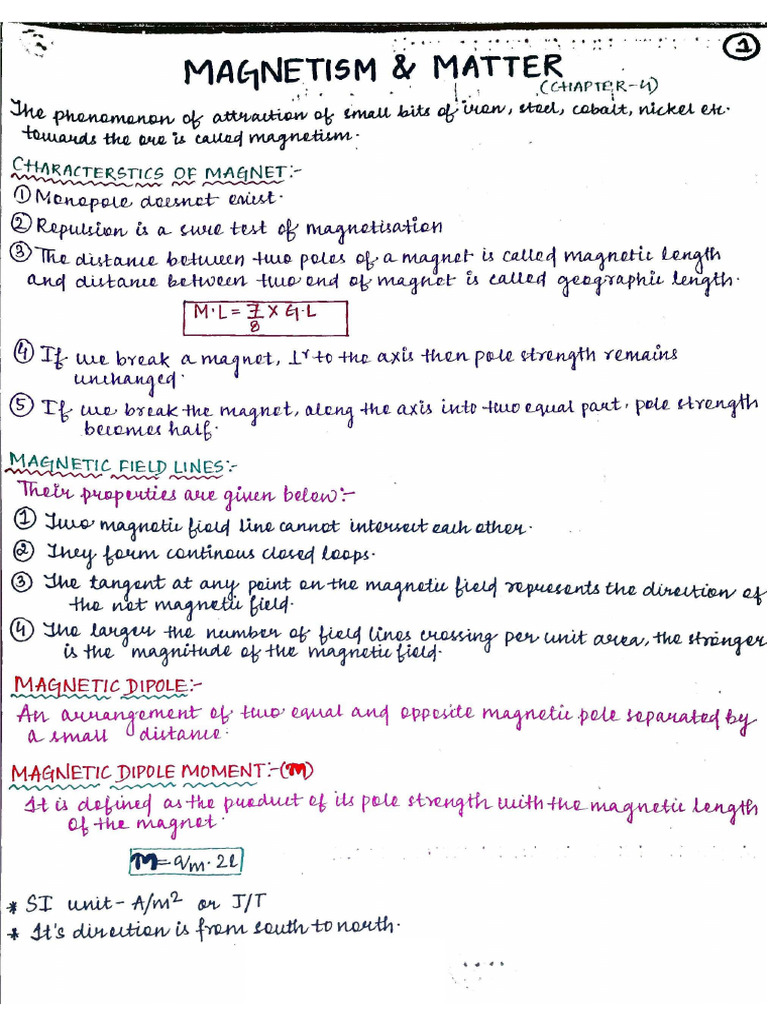 1
MAGNETISM & MATTER
(CHAPTER-4)
The phenomenon of attraction of small bits of iron, steel, cobalt, nickel etc.
towards the ore is called magnetism.
CHARACTERSTICS OF MAGNET:-
① Monopole doesnot exist.
② Repulsion is a sure test of magnetisation
③ The distance between two poles of a magnet is called magnetic length
and distance between two end of magnet is called geographic length.
M·L = 7/8 × G·L
④ If we break a magnet, ⊥r to the axis then pole strength remains
unchanged.
⑤ If we break the magnet, along the axis into two equal part, pole strength
becomes half.
MAGNETIC FIELD LINES:-
Their properties are given below:-
① Two magnetic field line cannot intersect each other.
② They form continous closed loops.
③ The tangent at any point on the magnetic field represents the direction of
the net magnetic field.
④ The larger the number of field lines crossing per unit area, the stronger
is the magnitude of the magnetic field.
MAGNETIC DIPOLE:-
An arrangement of two equal and opposite magnetic pole separated by
a small distance.
MAGNETIC DIPOLE MOMENT:-(M)
It is defined as the product of its pole strength with the magnetic length
of the magnet.
M = qm · 2l
* SI unit - A/m² or J/T
* It's direction is from south to north.